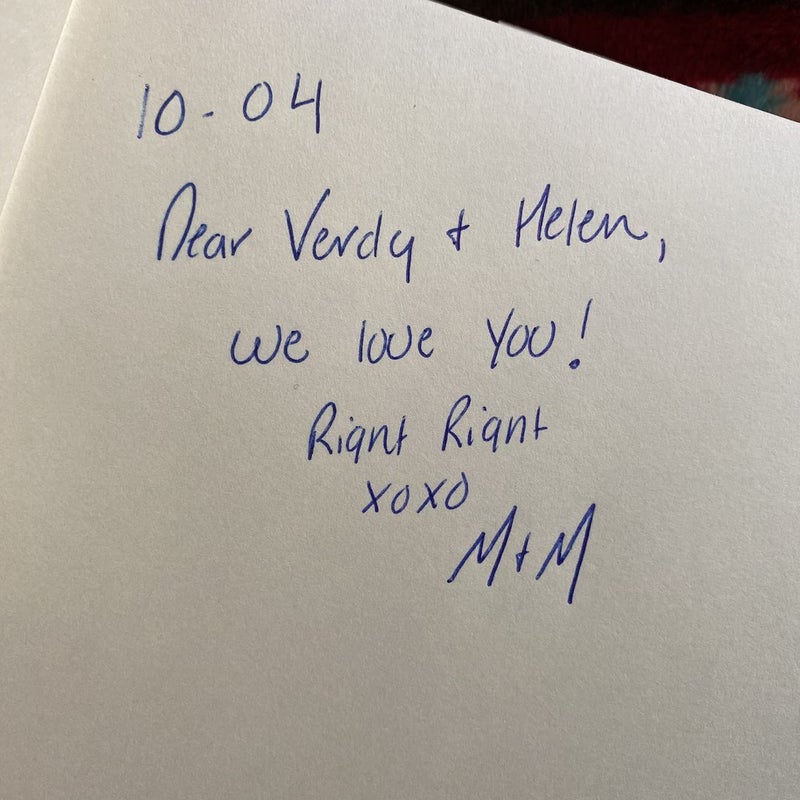 10-04
Dear Verdy + Helen,
we love you!
Right Right
xoxo
M + M